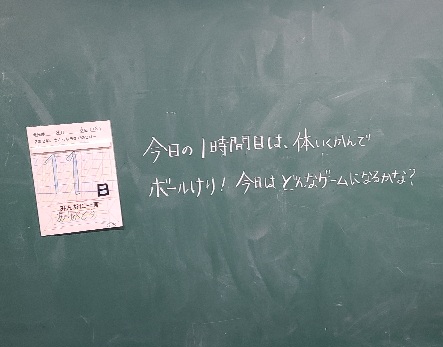 今日の1時間目は、体いくかんで
ボールけり！今日はどんなゲームになるかな？
11
日
みんなに一言